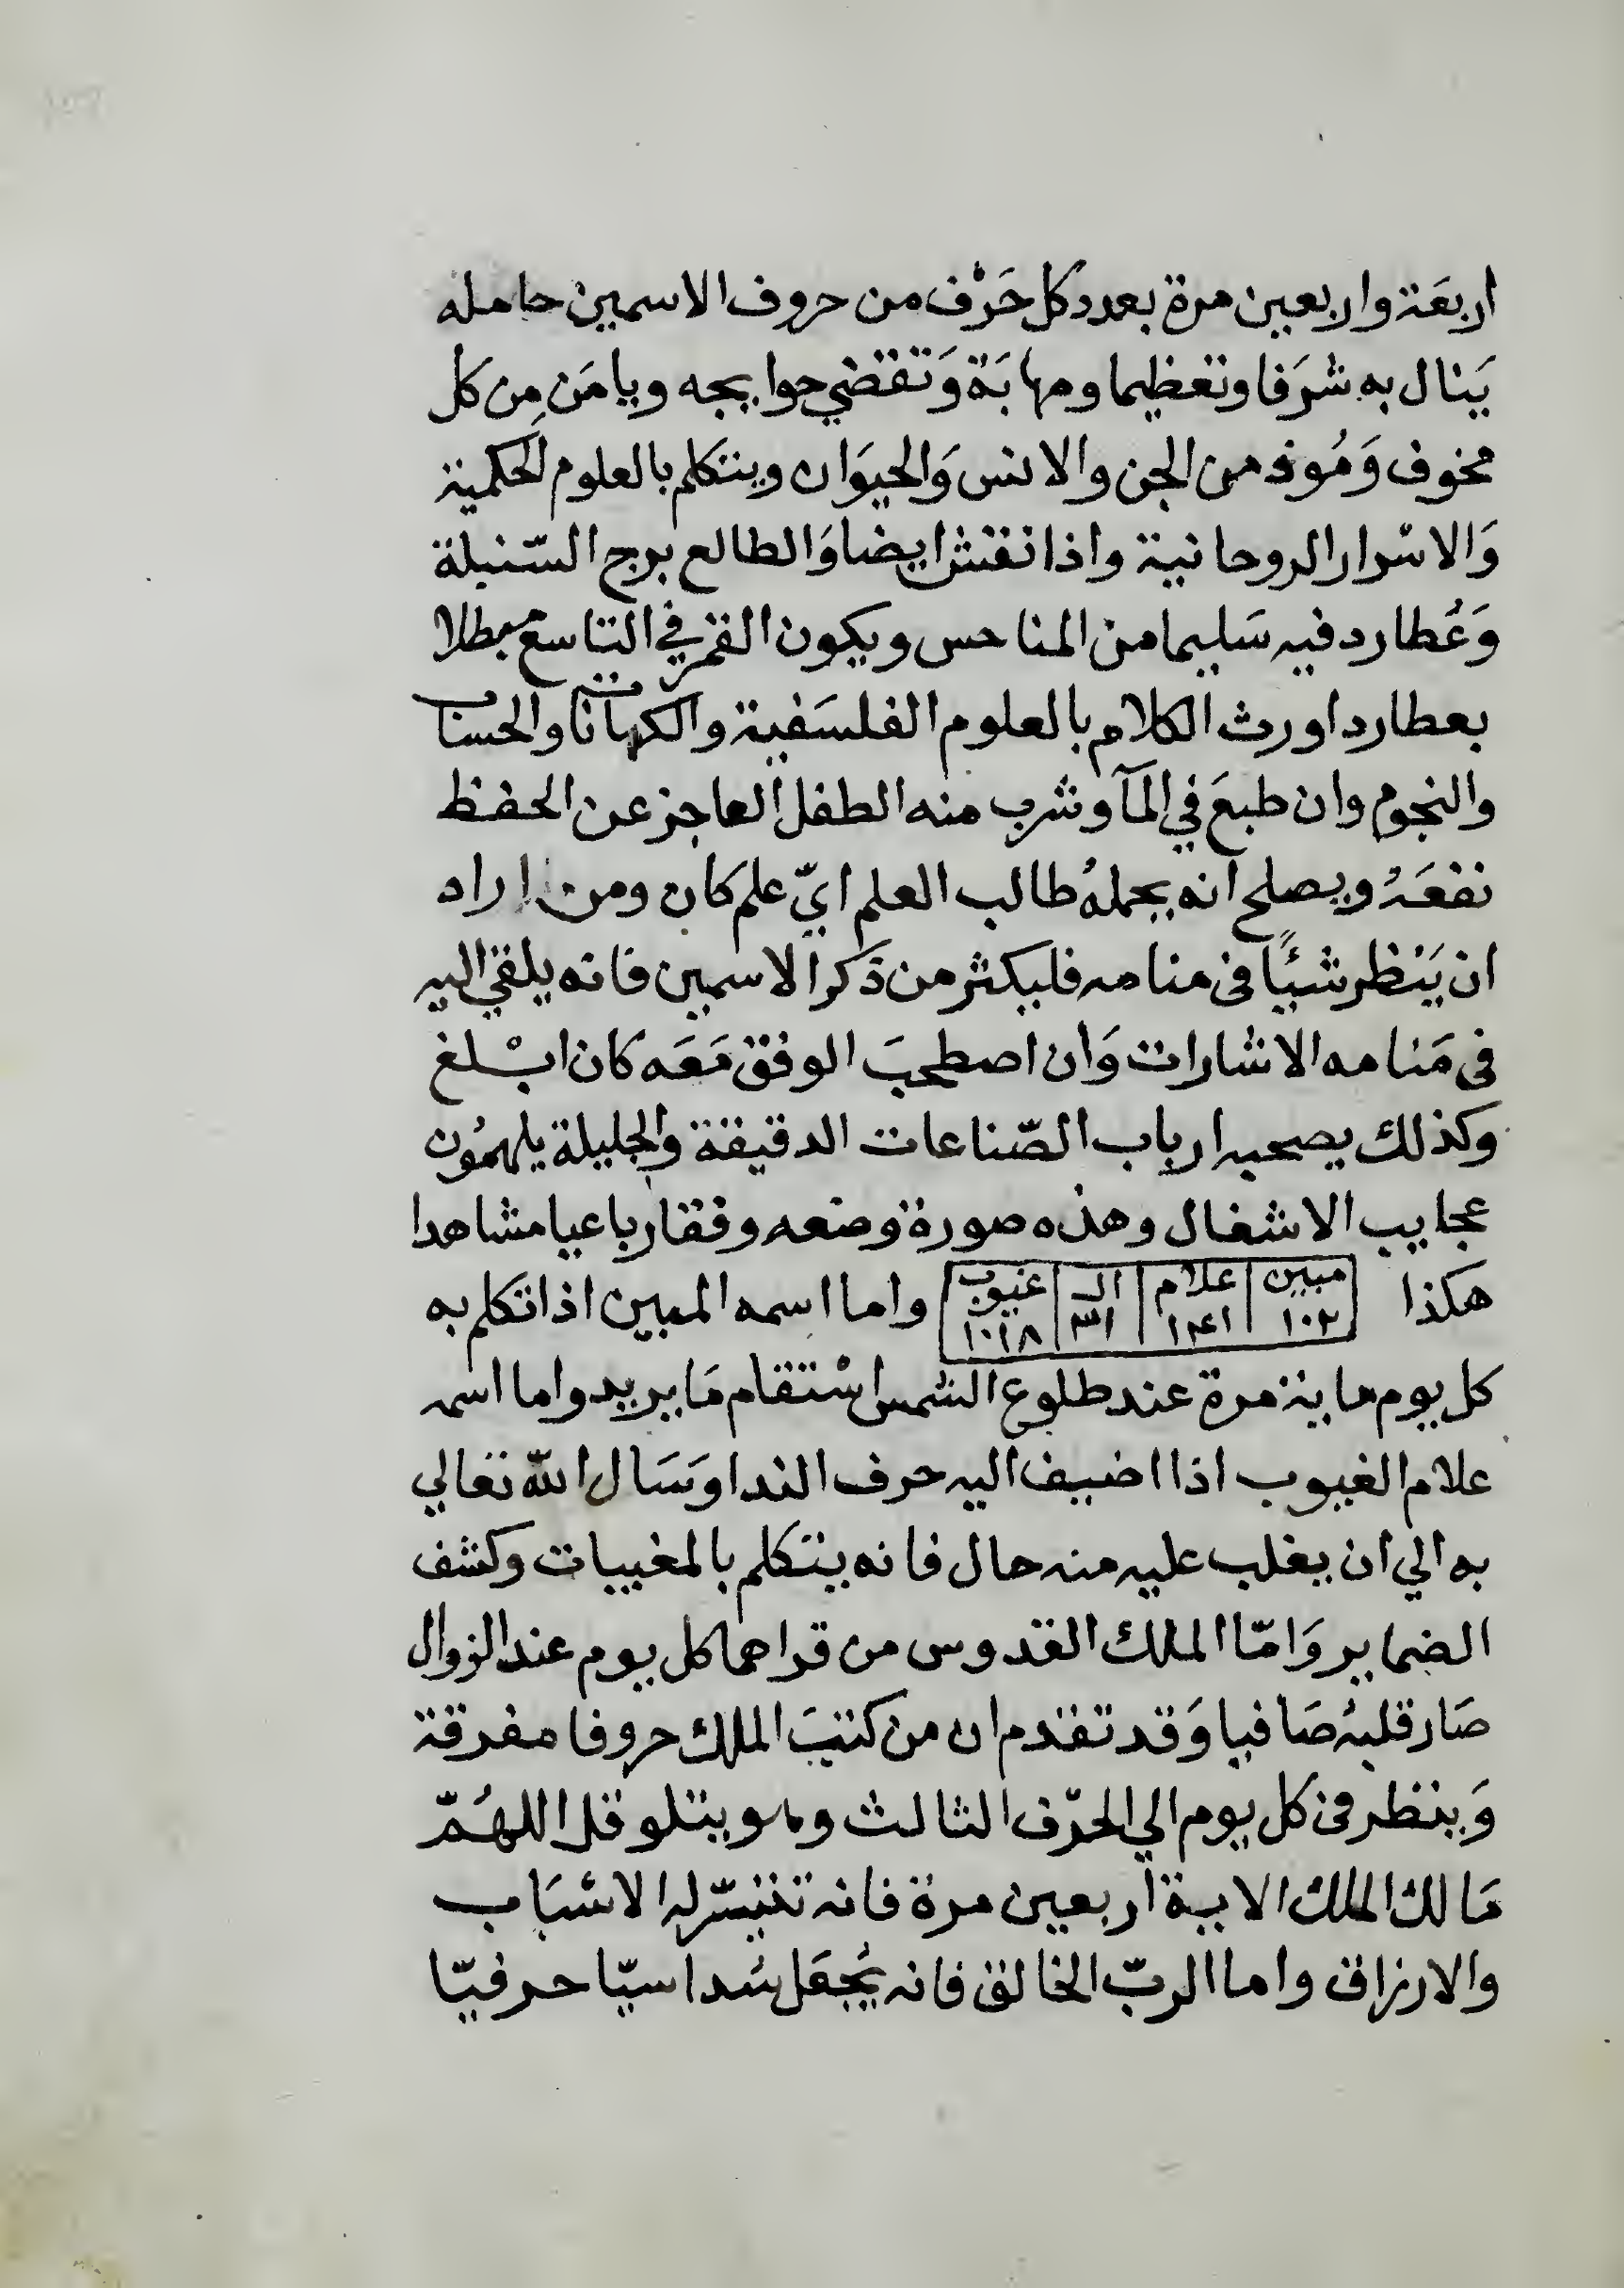 اربعَة واربعين مرة بعدد كل حَرْف من حروف الاسمين حامله
يَنال به شرَفا وتعظيما ومهابَة وَتقضي حوايجه ويامَن مِن كل
مخوف وَمُوذ من الجن والانس وَالحيوَان ويتكلم بالعلوم الحكمية
وَالاسْرار الروحانية واذا نقش ايضا وَالطالع برج السّنبلة
وَعُطارد فيه سَليما من المناحس ويكون القمر في التاسع
بعطارد اورث الكلام بالعلوم الفلسَفية والكهانات والحساب
والنجوم وان طبعَ في المآ وشرب منه الطفل العاجز عن الحفظ
نفعَهُ ويصلح انه يحملهُ طالب العلم ايّ علم كان ومن اراد
ان يَنظر شيئًا في منامه فليكثر من ذكر الاسمين فانه يلقي اليه
في مَنامه الاشارات وَان اصطحبَ الوفق مَعَه كان ابْلغ
وكذلك يصحبه ارباب الصّناعات الدقيقة والجليلة يلهمُون
عجايب الاشغال وهذه صورة وضعه وفقا رباعيا مشاهدا
هكذا مبين ١٠٢ علام ١٤١ الـ ٣١ غيوب ١٠١٨ واما اسمه المبين اذا تكلم به
كل يوم ماية مرة عند طلوع الشمس اسْتقام مَا يريد واما اسمه
علام الغيوب اذا اضيف اليه حرف الندا وَسَال الله تعالي
به الي ان يغلب عليه منه حال فانه يتكلم بالمغيبات وكشف
الضماير وَامّا الملك القدوس من قراهما كل يوم عند الزوال
صَار قلبهُ صَافيا وَقد تقدم ان من كتبَ الملك حروفا مفرقة
وَينظر في كل يوم الي الحرف الثالث وهو يتلو قل اللهُمّ
مَالك الملك الاية اربعين مرة فانه تتيسّر له الاسْبَاب
والارزاق واما الربّ الخالق فانه يُجعَل سُداسيّا حرفيّا